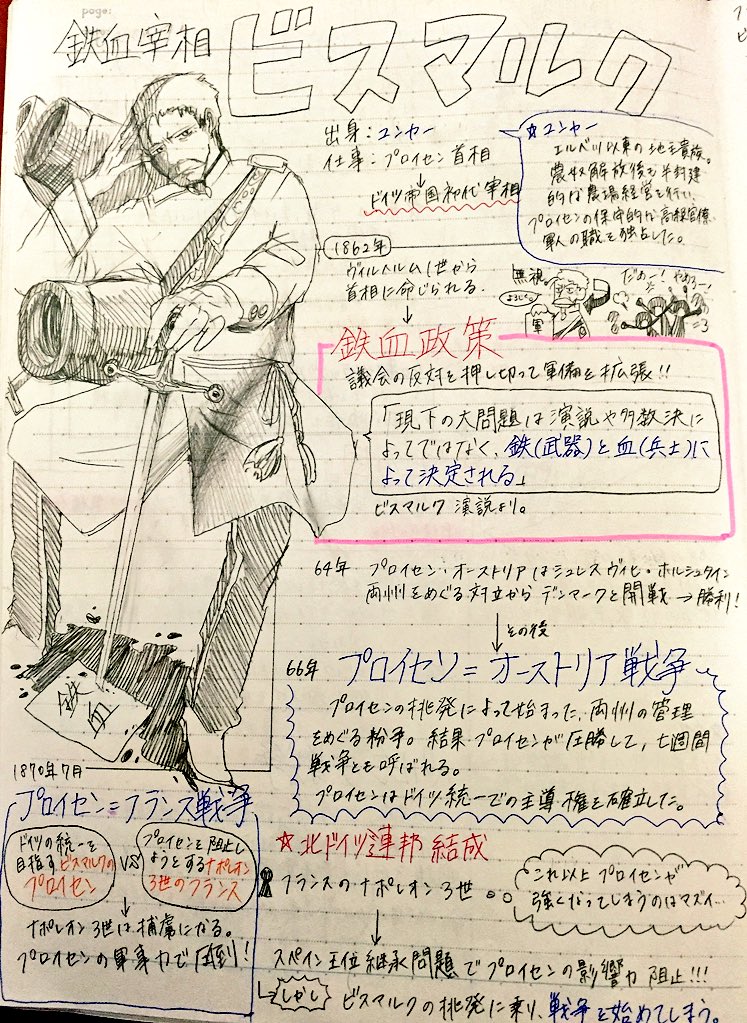 page:
鉄血宰相
ビスマルク
出身:ユンカー
仕事:プロイセン首相
ドイツ帝国初代宰相
☆ユンカー
エルベ川以東の地主貴族。
農奴解放後も半封建
的な農場経営を行い、
プロイセンの保守的な高級官僚、
軍人の職を独占した。
1862年
ヴィルヘルム1世から
首相に命じられる。
無視
軍
だめー!
やめろー!
鉄血政策
議会の反対を押し切って軍備を拡張!!
「現下の大問題は演説や多数決に
よってではなく、鉄(武器)と血(兵士)に
よって決定される」
ビスマルク 演説より。
64年 プロイセン・オーストリアはシュレスヴィヒ・ホルシュタイン
両州をめぐる対立からデンマークと開戦→勝利!
その後
66年 プロイセン=オーストリア戦争
プロイセンの挑発によって始まった、両州の管理
をめぐる紛争。結果プロイセンが圧勝して、七週間
戦争とも呼ばれる。
プロイセンはドイツ統一での主導権を確立した。
鉄
血
1870年7月
プロイセン=フランス戦争
ドイツの統一を
目指すビスマルクの
プロイセン
VS
プロイセンを阻止し
ようとするナポレオン
3世のフランス
ナポレオン3世は捕虜になる。
プロイセンの軍事力で圧倒!
☆北ドイツ連邦結成
フランスのナポレオン3世
これ以上プロイセンが
強くなってしまうのはマズイ…
スペイン王位継承問題でプロイセンの影響力阻止!!!
しかし
ビスマルクの挑発に乗り、戦争を始めてしまう。